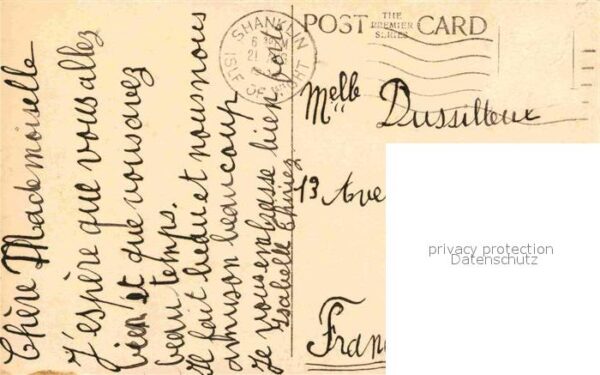 Chère Mademoiselle
J'espère que vous allez
bien et que vous avez
beau temps.
Il fait beau et nous nous
amuson beaucoup
Je vous embrasse bien forte
Isabelle
POST CARD
THE
PREMIER
SERIES
SHANKLIN
ISLE OF WIGHT
Melle Dussilleux
13 Ave
Fran
privacy protection
Datenschutz